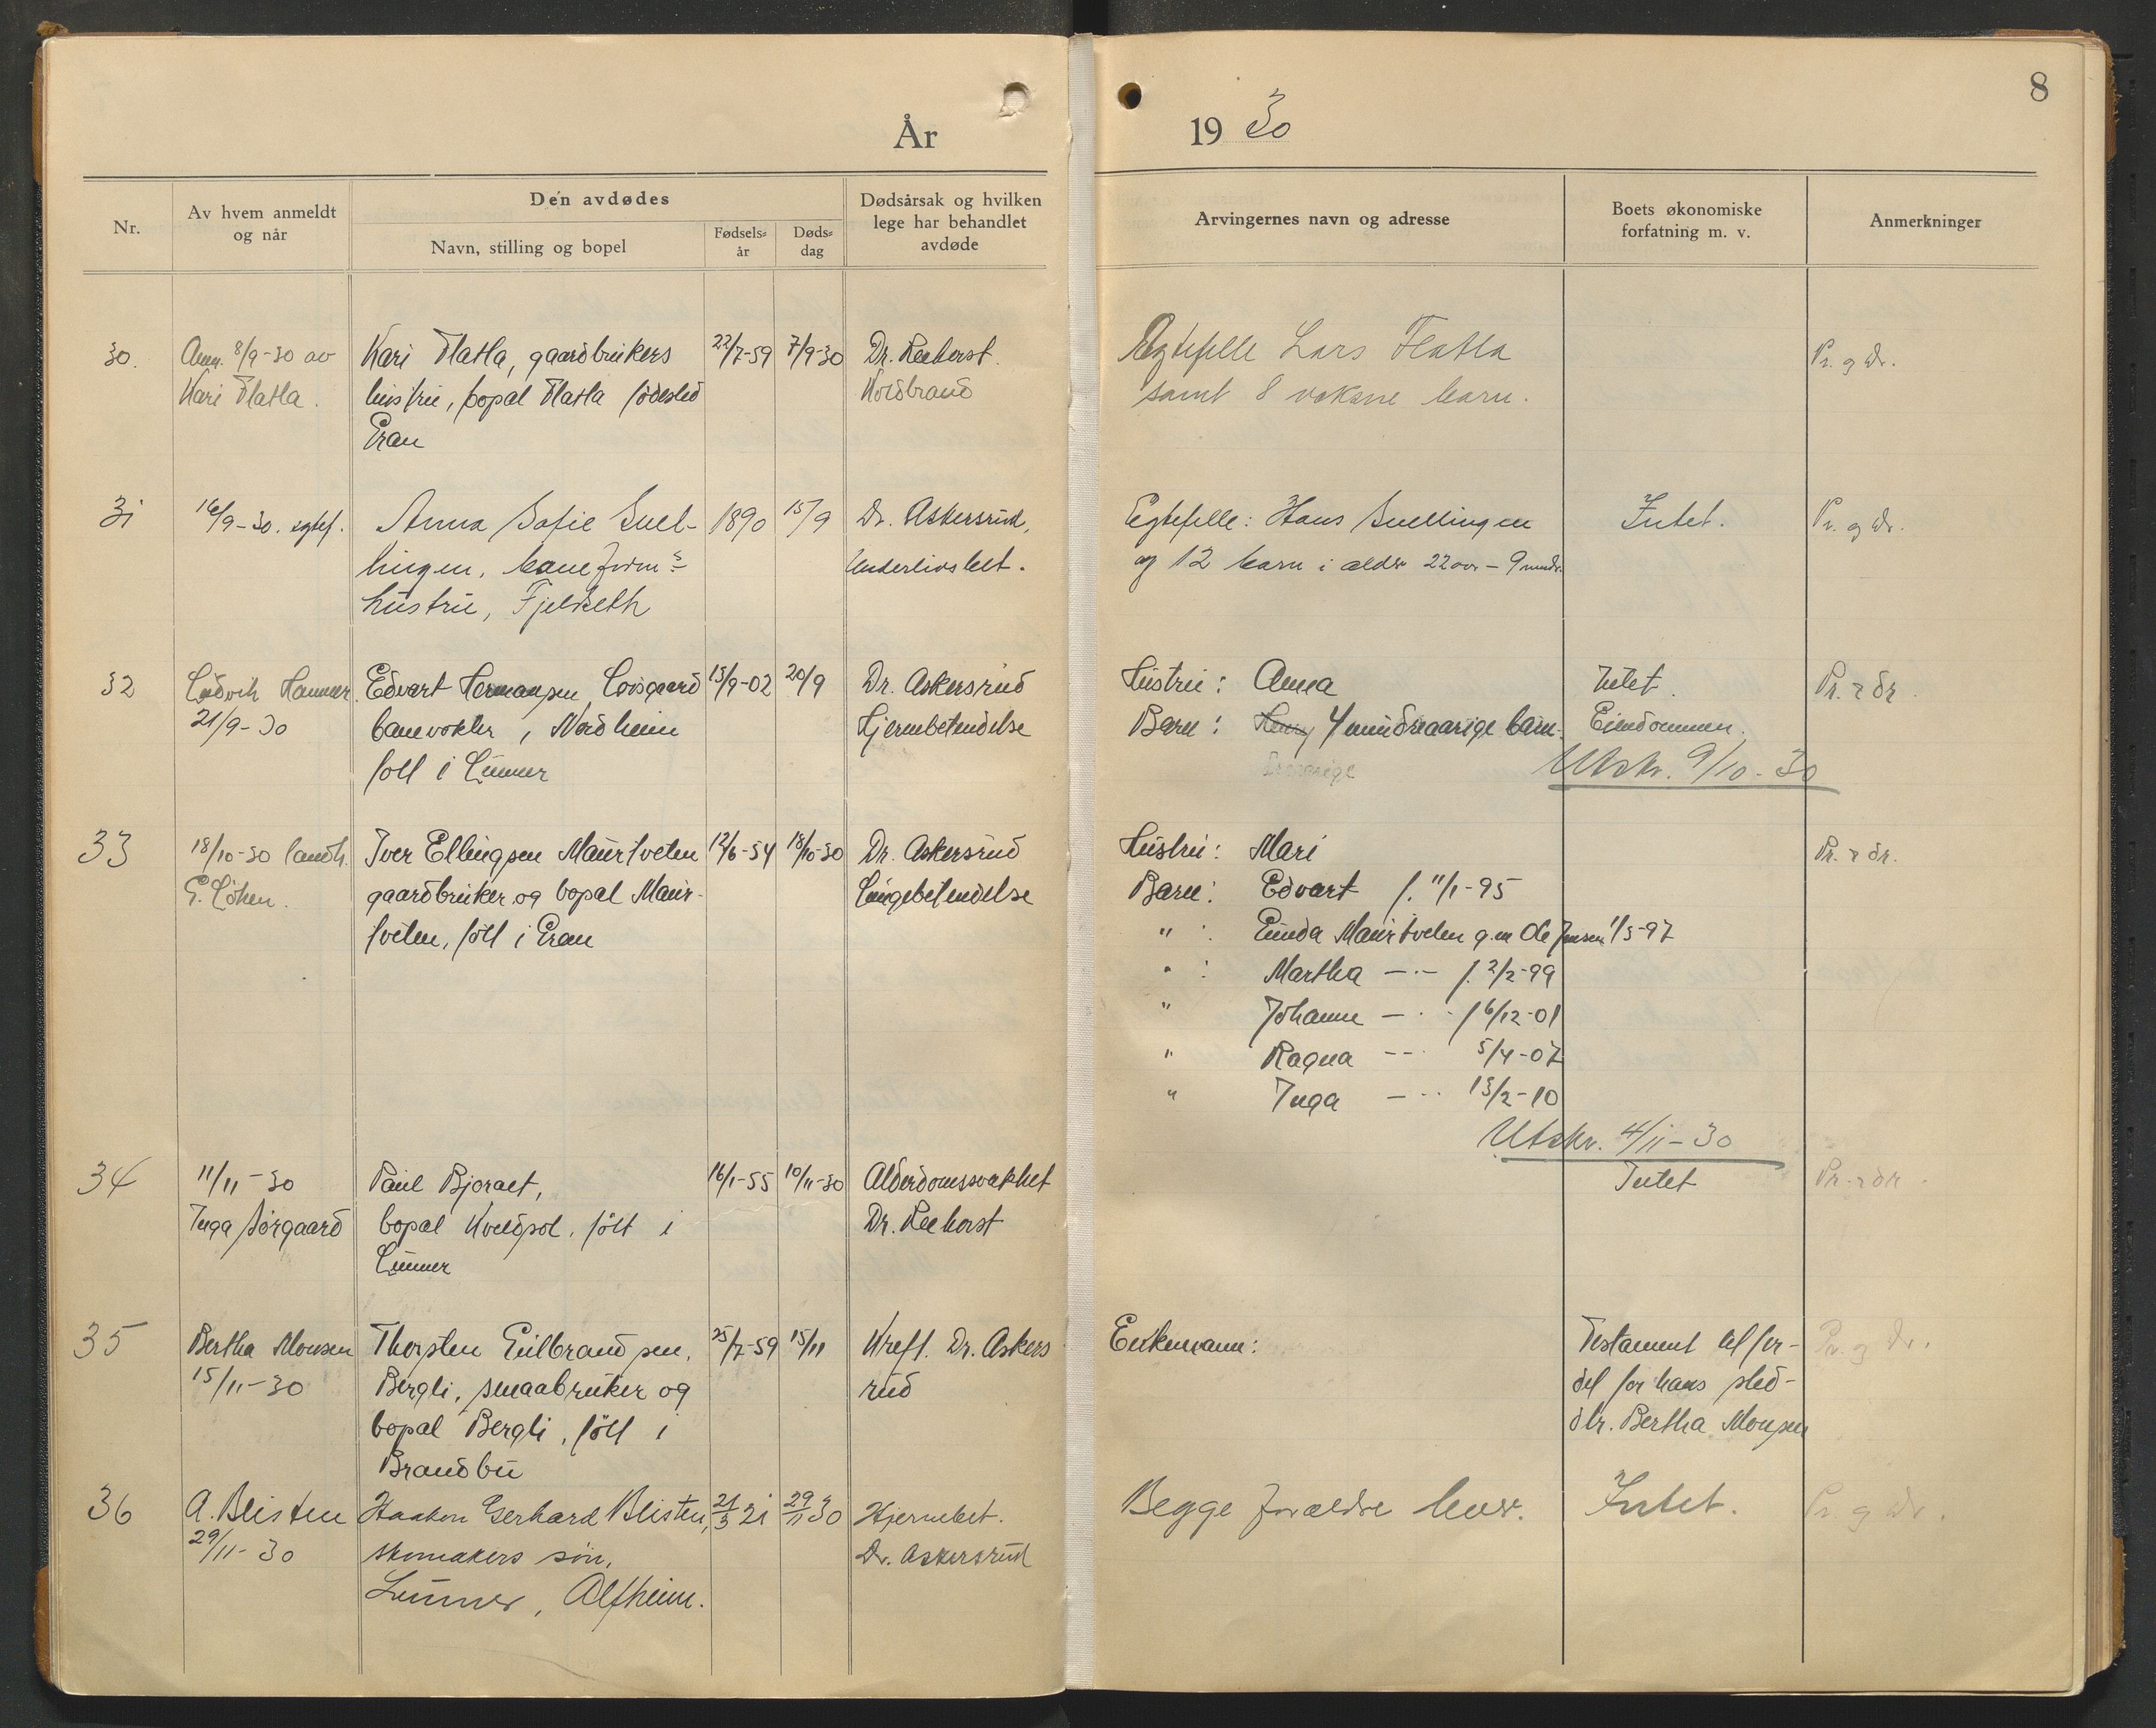 8
År 19 30
Nr.
Av hvem anmeldt
og når
Den avdødes
Navn, stilling og bopel
Fødsels-
år
Døds-
dag
Dødsårsak og hvilken
lege har behandlet
avdøde
Arvingernes navn og adresse
Boets økonomiske
forfatning m. v.
Anmerkninger
30.
Anm. 8/9-30 av
Kari Flatla.
Kari Flatla, gaardbrukers
hustru, bopæl Flatla fødested
Gran
22/7-59
7/9-30
Dr. Reehorst.
Koldbrand
Ægtefelle Lars Flatla
samt 8 voksne barn.
Pr. og dr.
31
16/9-30. egtef.
Anna Sofie Snel-
lingen, baneform.s
hustru, Fjeldseth
1890
15/9
Dr. Askersrud,
Underlivsbet.
Egtefelle: Hans Snellingen
og 12 barn i alder 22 aar - 9 mndr.
Intet.
Pr. og dr.
32
Ludvik Hammer.
21/9-30
Edvart Hermansen Lovsgaard
banevokter, Nordheim
født i Lunner
15/9-02
20/9
Dr. Askersrud
Hjernebetendelse
Hustru: Anna
Barn: 4 mindreaarige barn.
Intet.
Eiendommen.
Utskr. 9/10-30
Pr. & dr.
33
18/10-30 landh.
G. Løken.
Iver Ellingsen Maurtveten
gaardbruker og bopæl Maur-
tveten, født i Gran
12/6-54
18/10-30
Dr. Askersrud
Lungebetendelse
Hustru: Mari
Barn: Edvart f. 11/1-95
" : Gunda Maurtveten g.m Ole Jensen 1/5-97
" : Martha -.- f. 2/2-99
" Johanne - . - f 6/12-01
" Ragna -- 5/4-07
" Inga - .. 13/2-10
Utskr. 4/11-30
Pr. & dr.
34
11/11-30
Inga Sørgaard
Paul Bjoraet,
bopæl Kveldsol, født i
Lunner
16/1-55
10/11-30
Alderdomssvakhet
Dr. Reehorst
Intet
Pr. & dr.
35
Bertha Monsen
15/11-30
Thorsten Gulbrandsen,
Bergli, smaabruker og
bopæl Bergli, født i
Brandbu
25/7-59
15/11
Kreft. Dr. Askers
rud
Enkemann:
Testament til for-
del for hans sted-
dtr. Bertha Monsen
Pr. og dr.
36
A. Blisten
29/11-30
Haakon Gerhard Blisten,
skomakers søn,
Lunner, Alfheim.
21/3 21
29/11 30
Hjernebet.
Dr. Askersrud
Begge forældre lever.
Intet.
Pr. og dr.